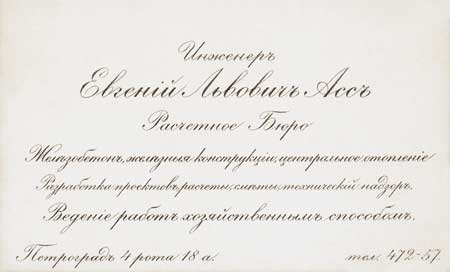 Инженеръ
Евгеній Львовичъ Ассъ
Расчетное Бюро
Желѣзобетон, желѣзныя конструкціи, центральное отопленіе
Разработка проектовъ, расчеты, смѣты, техническій надзоръ.
Веденіе работъ хозяйственнымъ способомъ.
Петроградъ 4 рота 18 а. тел. 472-57.